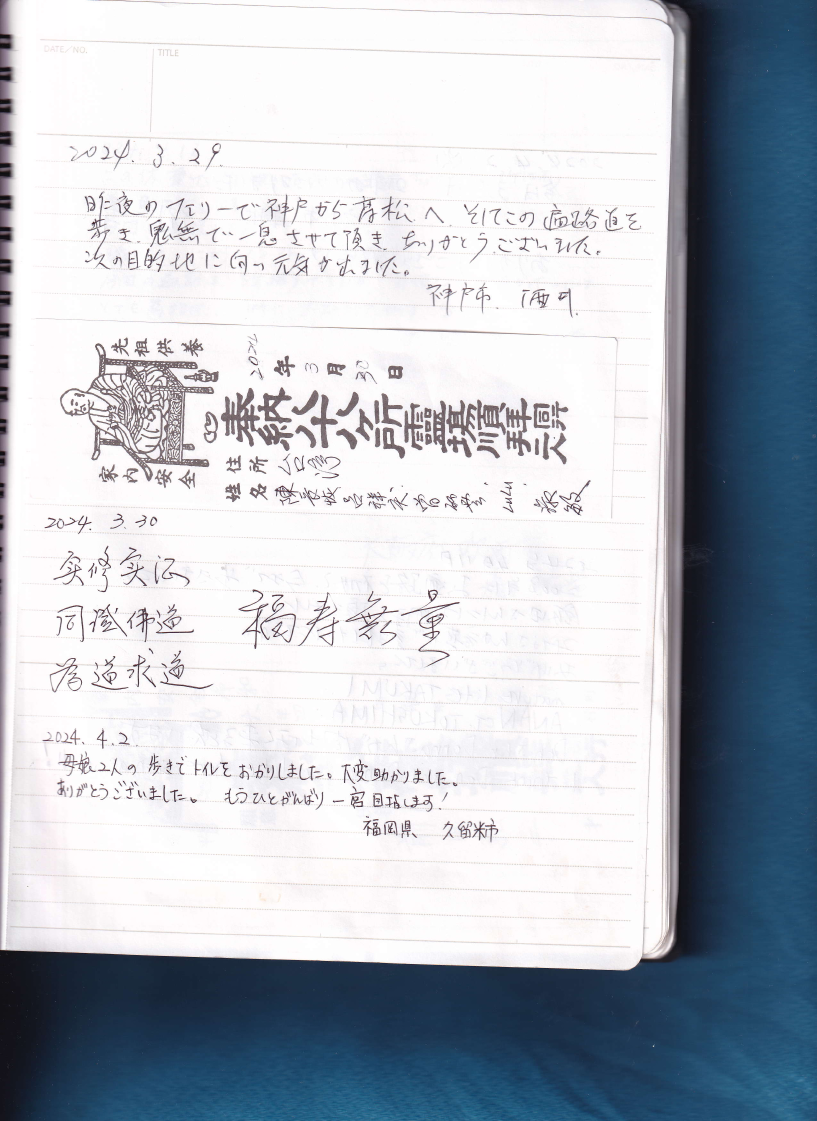 DATE/NO.
TITLE
2024. 3. 29.
昨夜のフェリーで神戸から高松へ、そしてこの遍路道を
歩き、鬼無で一息させて頂き、ありがとうございました。
次の目的地に向い元気が出ました。
神戸市
先祖供養
家内安全
2024年3月30日
奉納八十八ヶ所霊場順拝同行二人
住所 台湾
姓名
LuLu
2024. 3. 30
实修实证
同證佛道
為道求道
福寿無量
2024. 4. 2.
母娘2人の歩きでトイレをおかりしました。大変助かりました。
ありがとうございました。 もうひとがんばり一宮目指します!
福岡県 久留米市